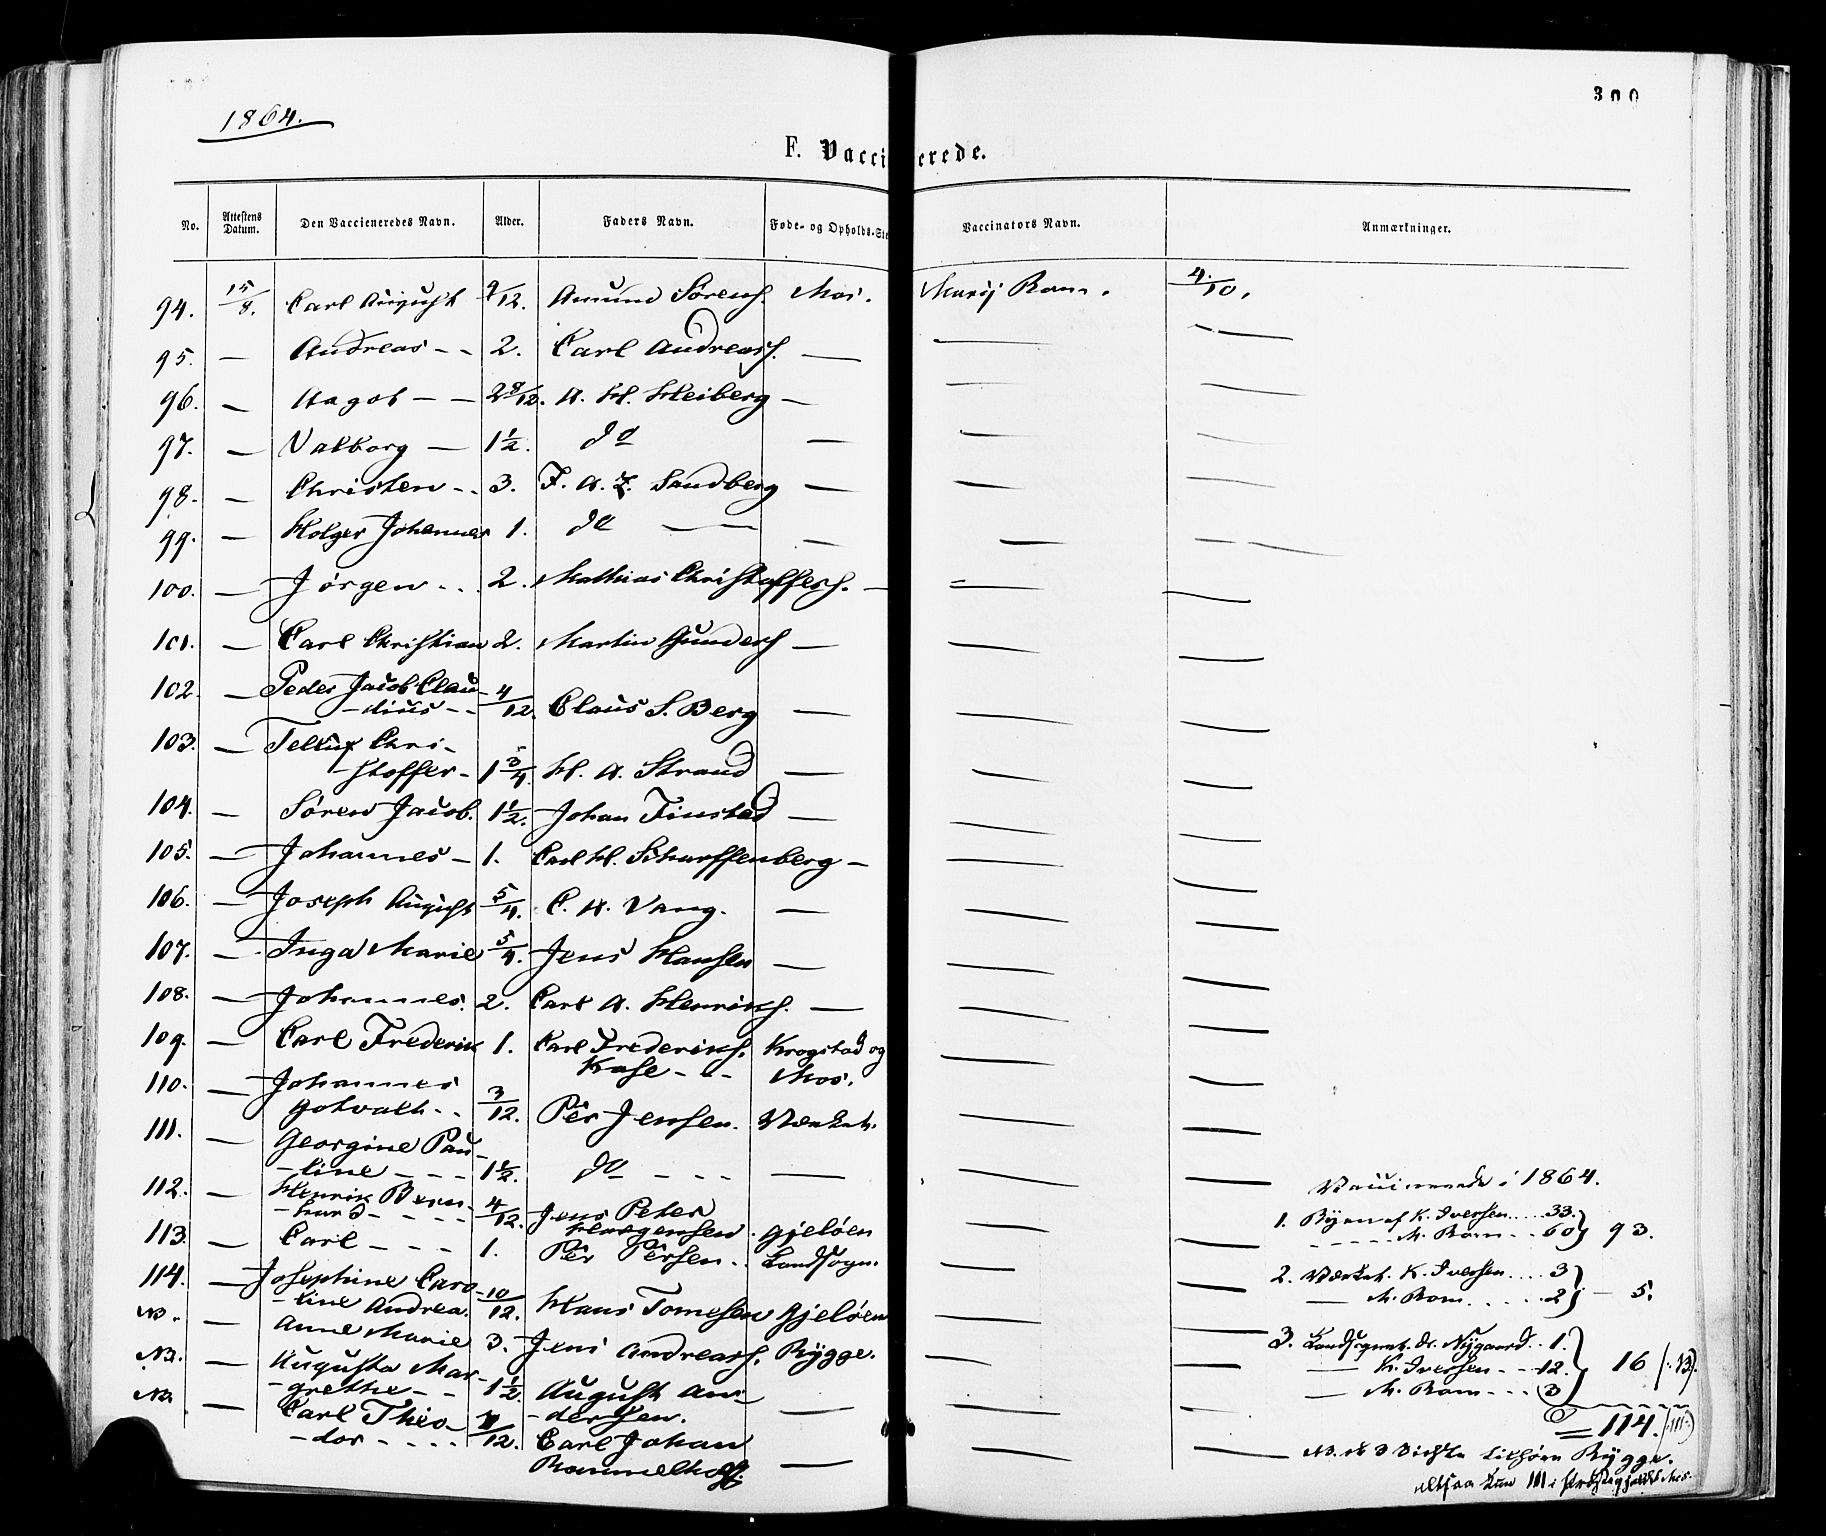 300
1864.
F. Vaccinerede.
No. Attestens Datum. Den Vaccieneredes Navn. Alder. Faders Navn. Føde- og Opholds-Ste Vaccinators Navn. Anmærkninger.
94. 15/8. Carl August 9/12. Amund Sørens. Mos. Ram. 4/10.
95. — Andreas - - 2. Carl Andreass. —
96. — Aagot — — 2 8/12. A. H. Heiberg —
97. — Valborg — 1 1/2. do —
98. — Christen - - 3. F. A. Z. Sandberg —
99. — Holger Johannes 1. do — —
100. — Jørgen - - . 2. Mathias Christoffers. —
101. — Carl Christian 2. Martin Gunders —
102. — Peder Jacob Clau-
-dius - - 4/12. Claus S. Berg —
103. — Chri-
-stoffer - 1 3/4. H. A. Strand —
104. — Søren Jacob. 1 1/2. Johan Finstad —
105. — Johannes - 1. Carl H. Scharffenberg —
106. — Joseph August 5/4. C. A. Vang. —
107. — Inga Marie 5/4. Jens Hansen —
108. — Johannes. 2. Carl A. Henriks. —
109. — Carl Frederik 1. Carl Frederiks. Krogstad og
Kase - - - Mos.
110. — Johannes
Gotvalt - - 3/12. Per Jensen. Værket.
111. — Georgine Pau-
-line - - - 1 1/2. do - - - —
112. — Henrik Bern-
-hard - - - - 4/12. Jens Peter
Horgensen. Gjeløen
113. — Carl - - - - 1. Per Persen - - Landsogn.
114. — Josephine Caro-
-line Andrea. 10/12. Hans Tomesen Gjeløen
NB. — Anne Marie 3. Jens Andreass. Rygge.
NB. — Augusta Mar-
-grethe - - 1 1/2. August An-
-dersen. —
NB. — Carl Theo-
-dor - - - - /12. Carl Johan
Rommelhoff. —
Vaccinerede i 1864.
1. Byen af K. Iversen.... 33.
- - - - - M. Ram - - - 60 } 93.
2. Værket. K. Iversen.... 3
— M. Ram. - - - - - 2 } — 5.
3. Landsognet. Dr. Nygaard - - 1.
— K. Iversen - - - 12.
— M. Ram - - - (3) } 16 (: 13)
= 114. (111)
NB. de 3 sidste tilhøre Rygge.
altsaa kun 111 i Mos.